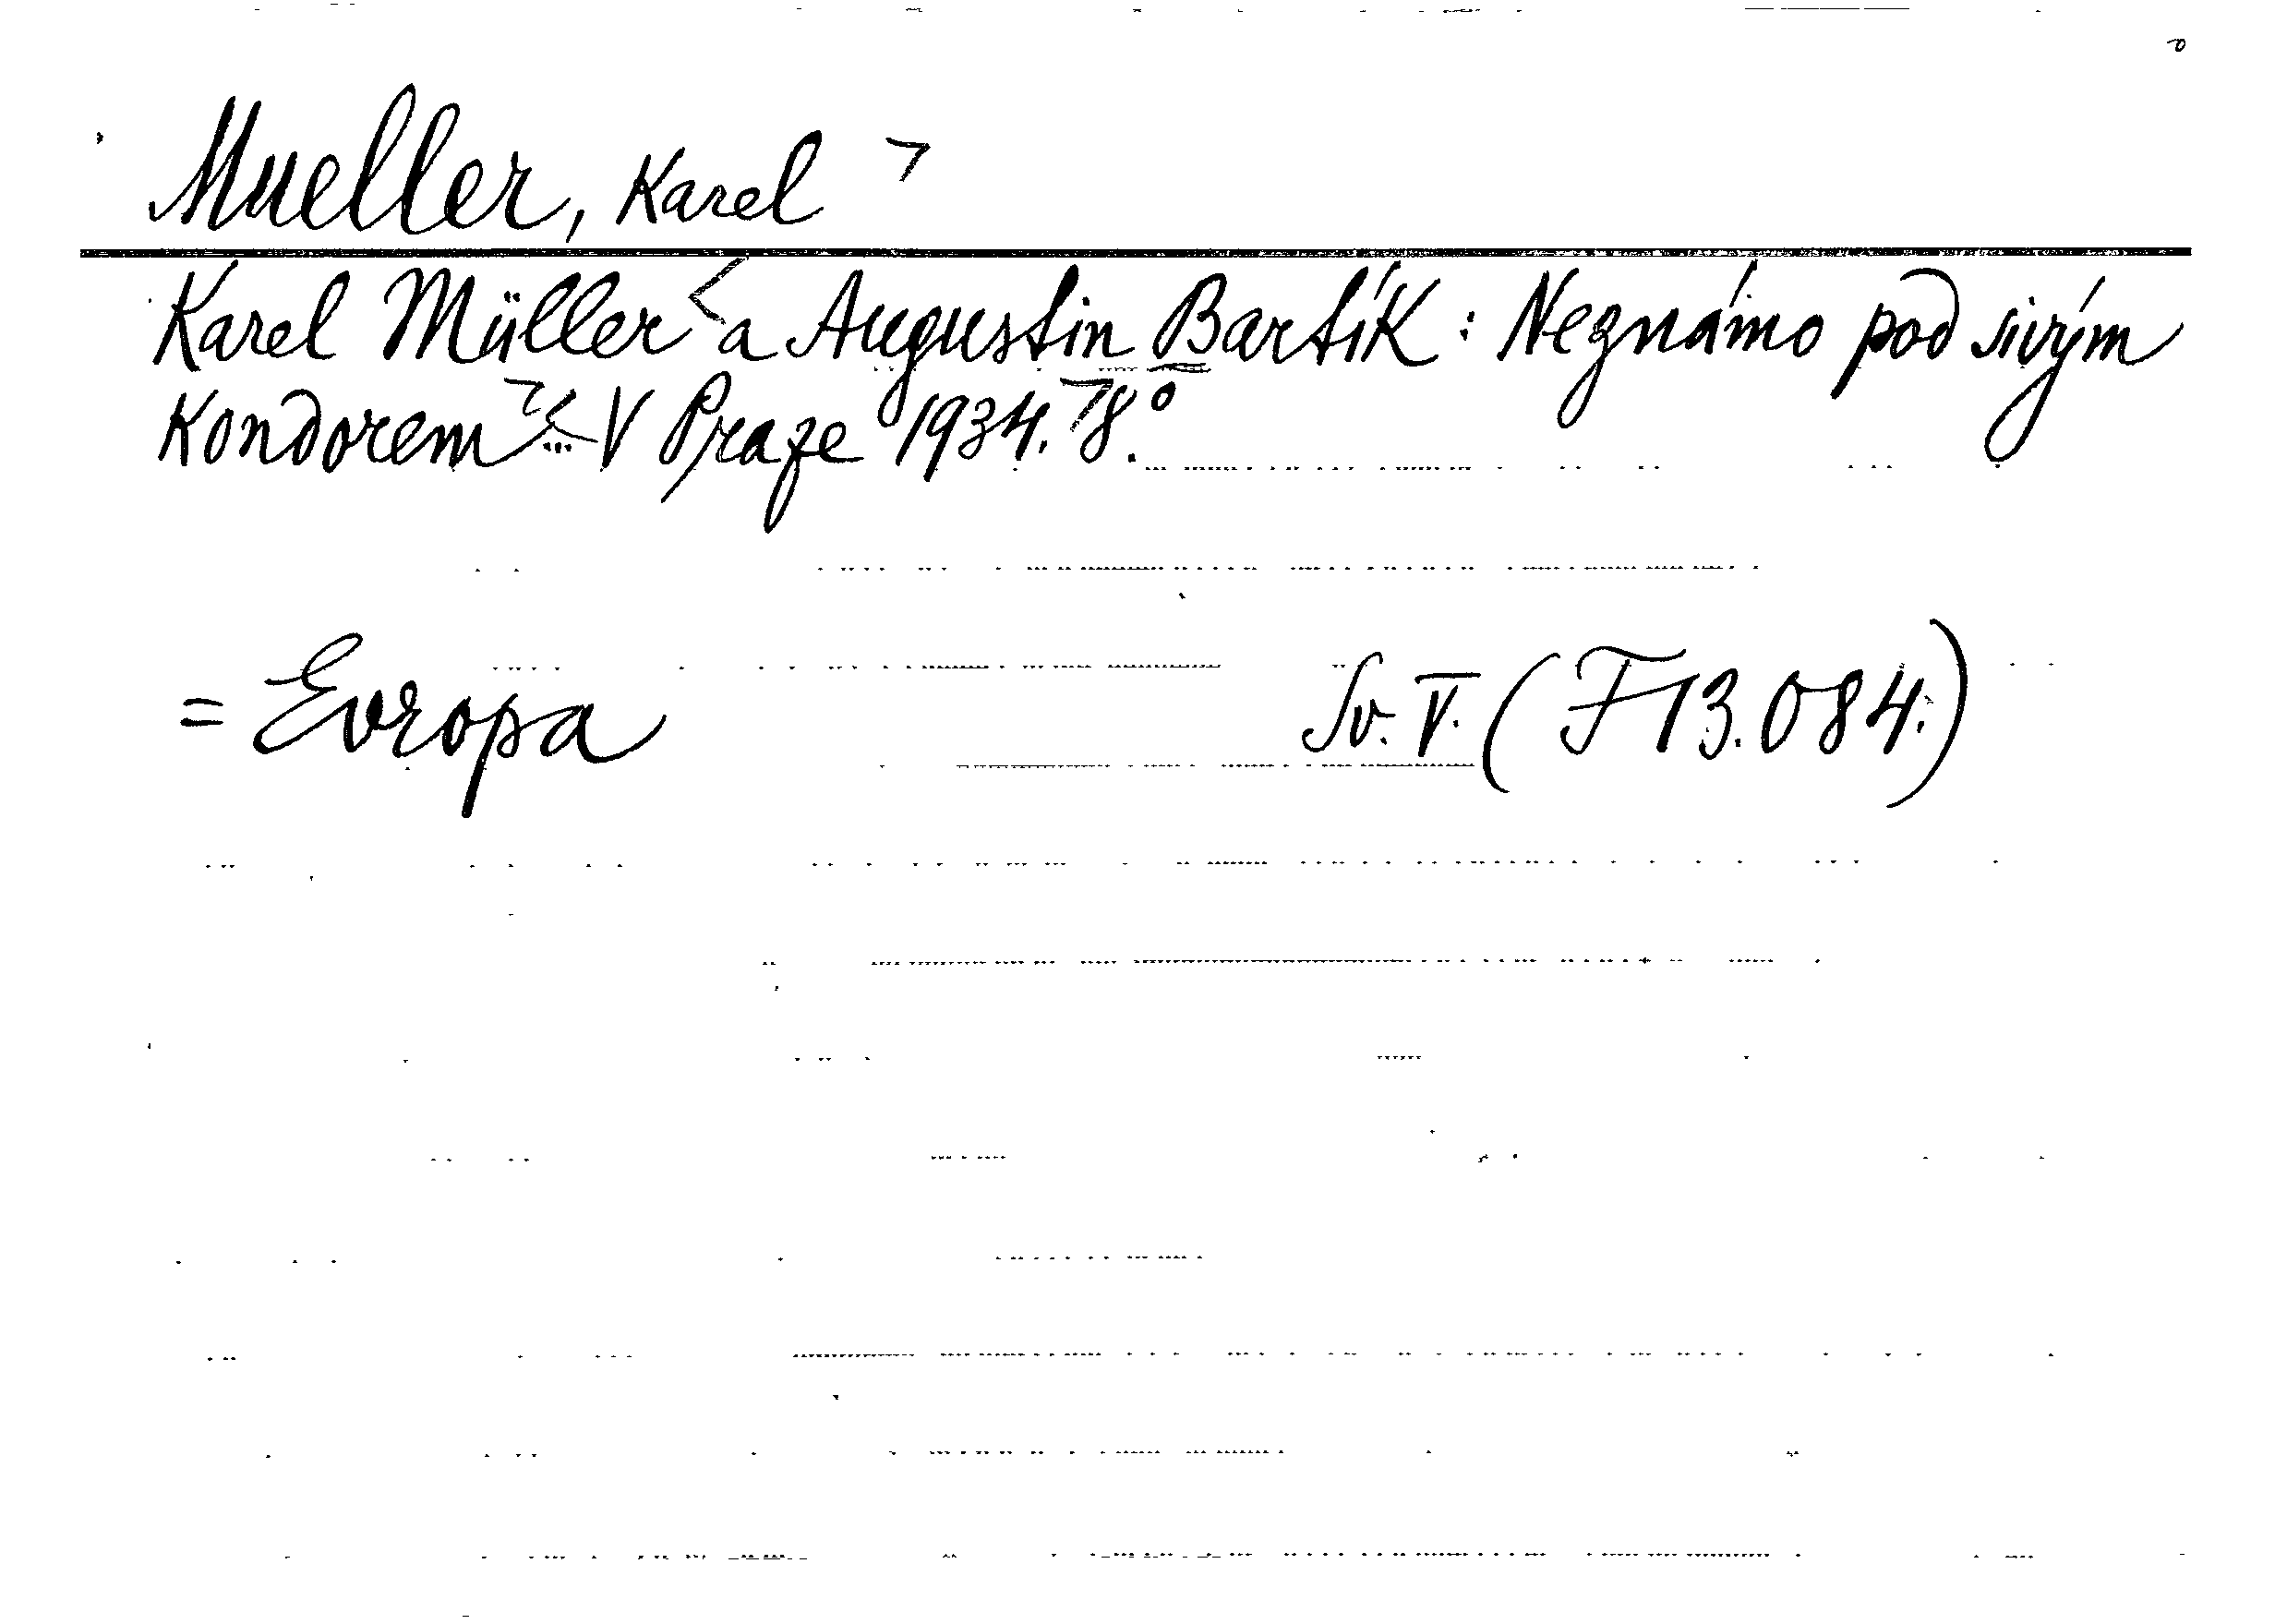 Mueller, Karel ㄱ
Karel Müller < a Augustin Bartík : Neznámo pod sivým
Kondorem ... V Praze 1934. 8°.
= Evropa Sv. V. (F 13.084.)